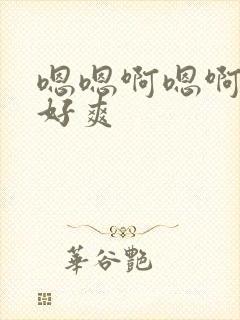 嗯嗯啊嗯啊
好爽
華谷艷